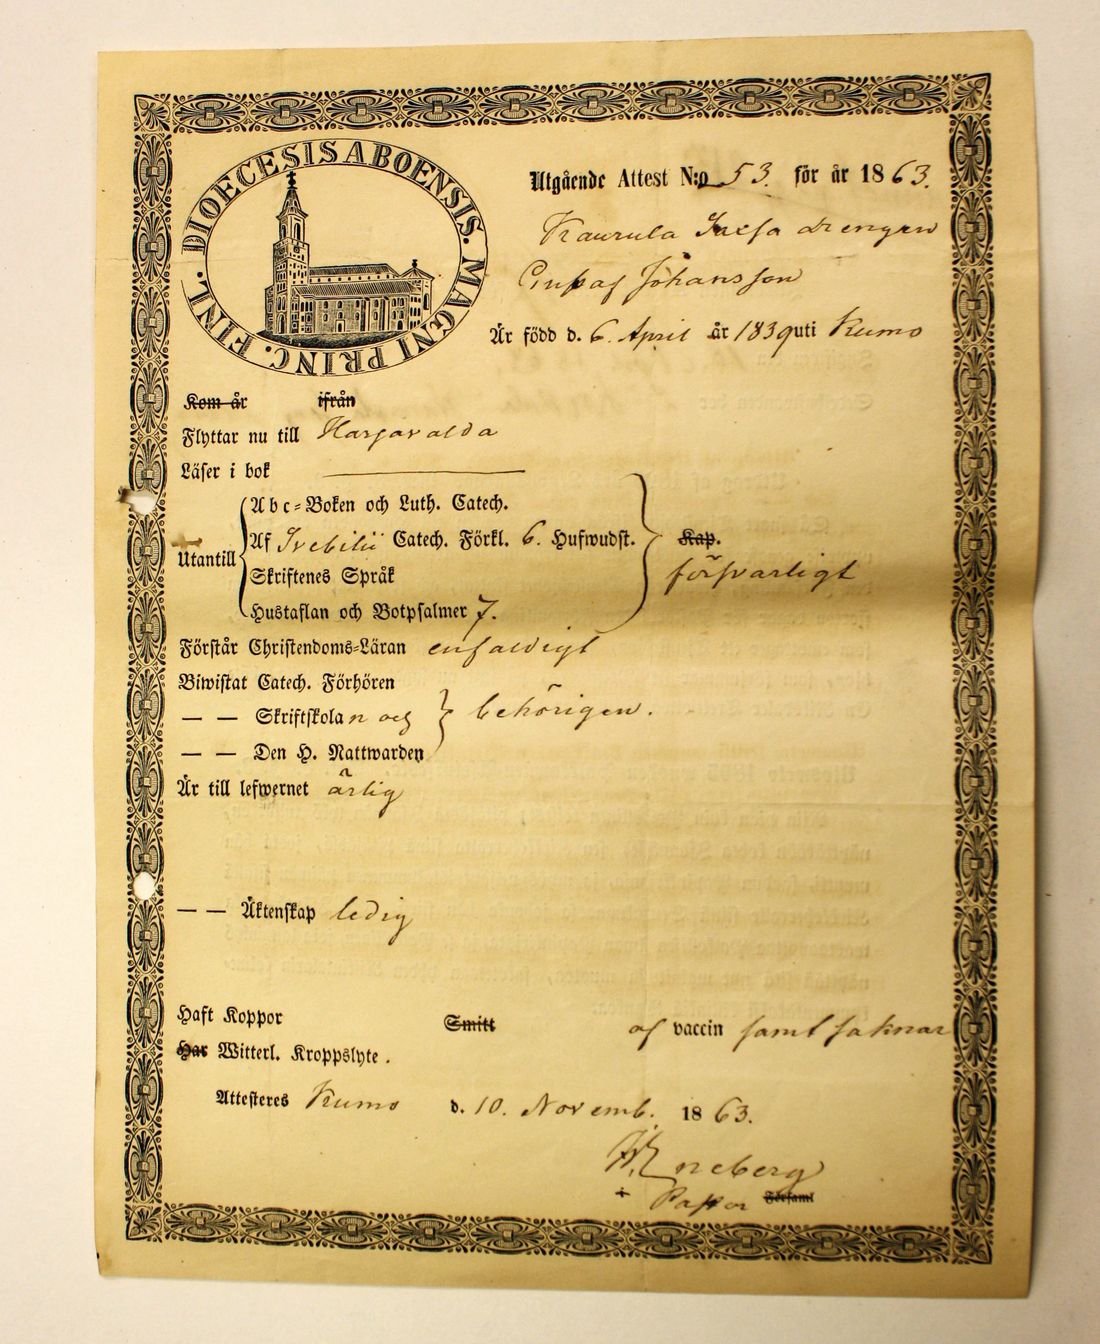 DIOECESIS ABOENSIS. MAGNI PRINC. FINL.
Utgående Attest N:o 53. för år 1863.
Kaurula drengen
Gustaf Johansson
Är född d. 6 April år 1839 uti Kumo
Kom år ifrån
Flyttar nu till Harjavalda
Läser i bok
Utantill
Abc-Boken och Luth. Catech.
Af Svebilii Catech. Förkl. 6. Hufwudst. Kap.
Skriftenes Språk
försvarligt
Hustaflan och Botpsalmer 7.
Förstår Christendoms-Läran enfaldigt
Biwistat Catech. Förhören
— — Skriftskolan och behörigen.
— — Den H. Nattwarden
Är till lefwernet ärlig
— — Äktenskap ledig
Haft Koppor Smitt af vaccin samt saknar
Har Witterl. Kroppslyte.
Attesteres Kumo d. 10. Novemb. 1863.
Eneberg
Pastor Församl